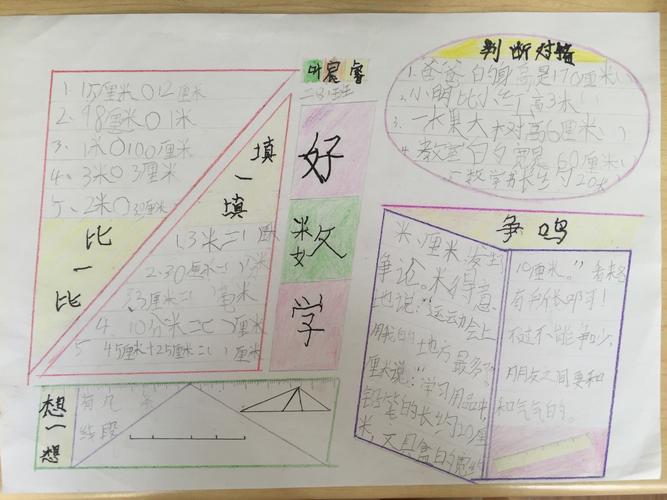 1. 15厘米○12厘米
2. 98厘米○1米
3. 1米○100厘米
4. 3米○3厘米
5. 2米○
比一比
填一填
1.3米=( )厘
2.30厘米=( )米
3厘米=( )毫米
4. 10分米=( )厘米
5 45厘米+25厘米=( )厘米
想一想
有几条
线段
二
好
数
学
判断对错
1. 爸爸的身高是170厘米( )
2. 小明比小华高3米( )
3. 一水果大树高6厘米( )
4. 教室的宽是60厘米( )
争鸣
米、厘米发生
争论。米得意
地说:“运动会上
用我的地方最多
厘米说:“学习用品中
铅笔的长约20厘
米,文具盒的宽约
10厘米。”看来各
有所长耶!
不过不能争吵,
朋友之间要和
和气气的。